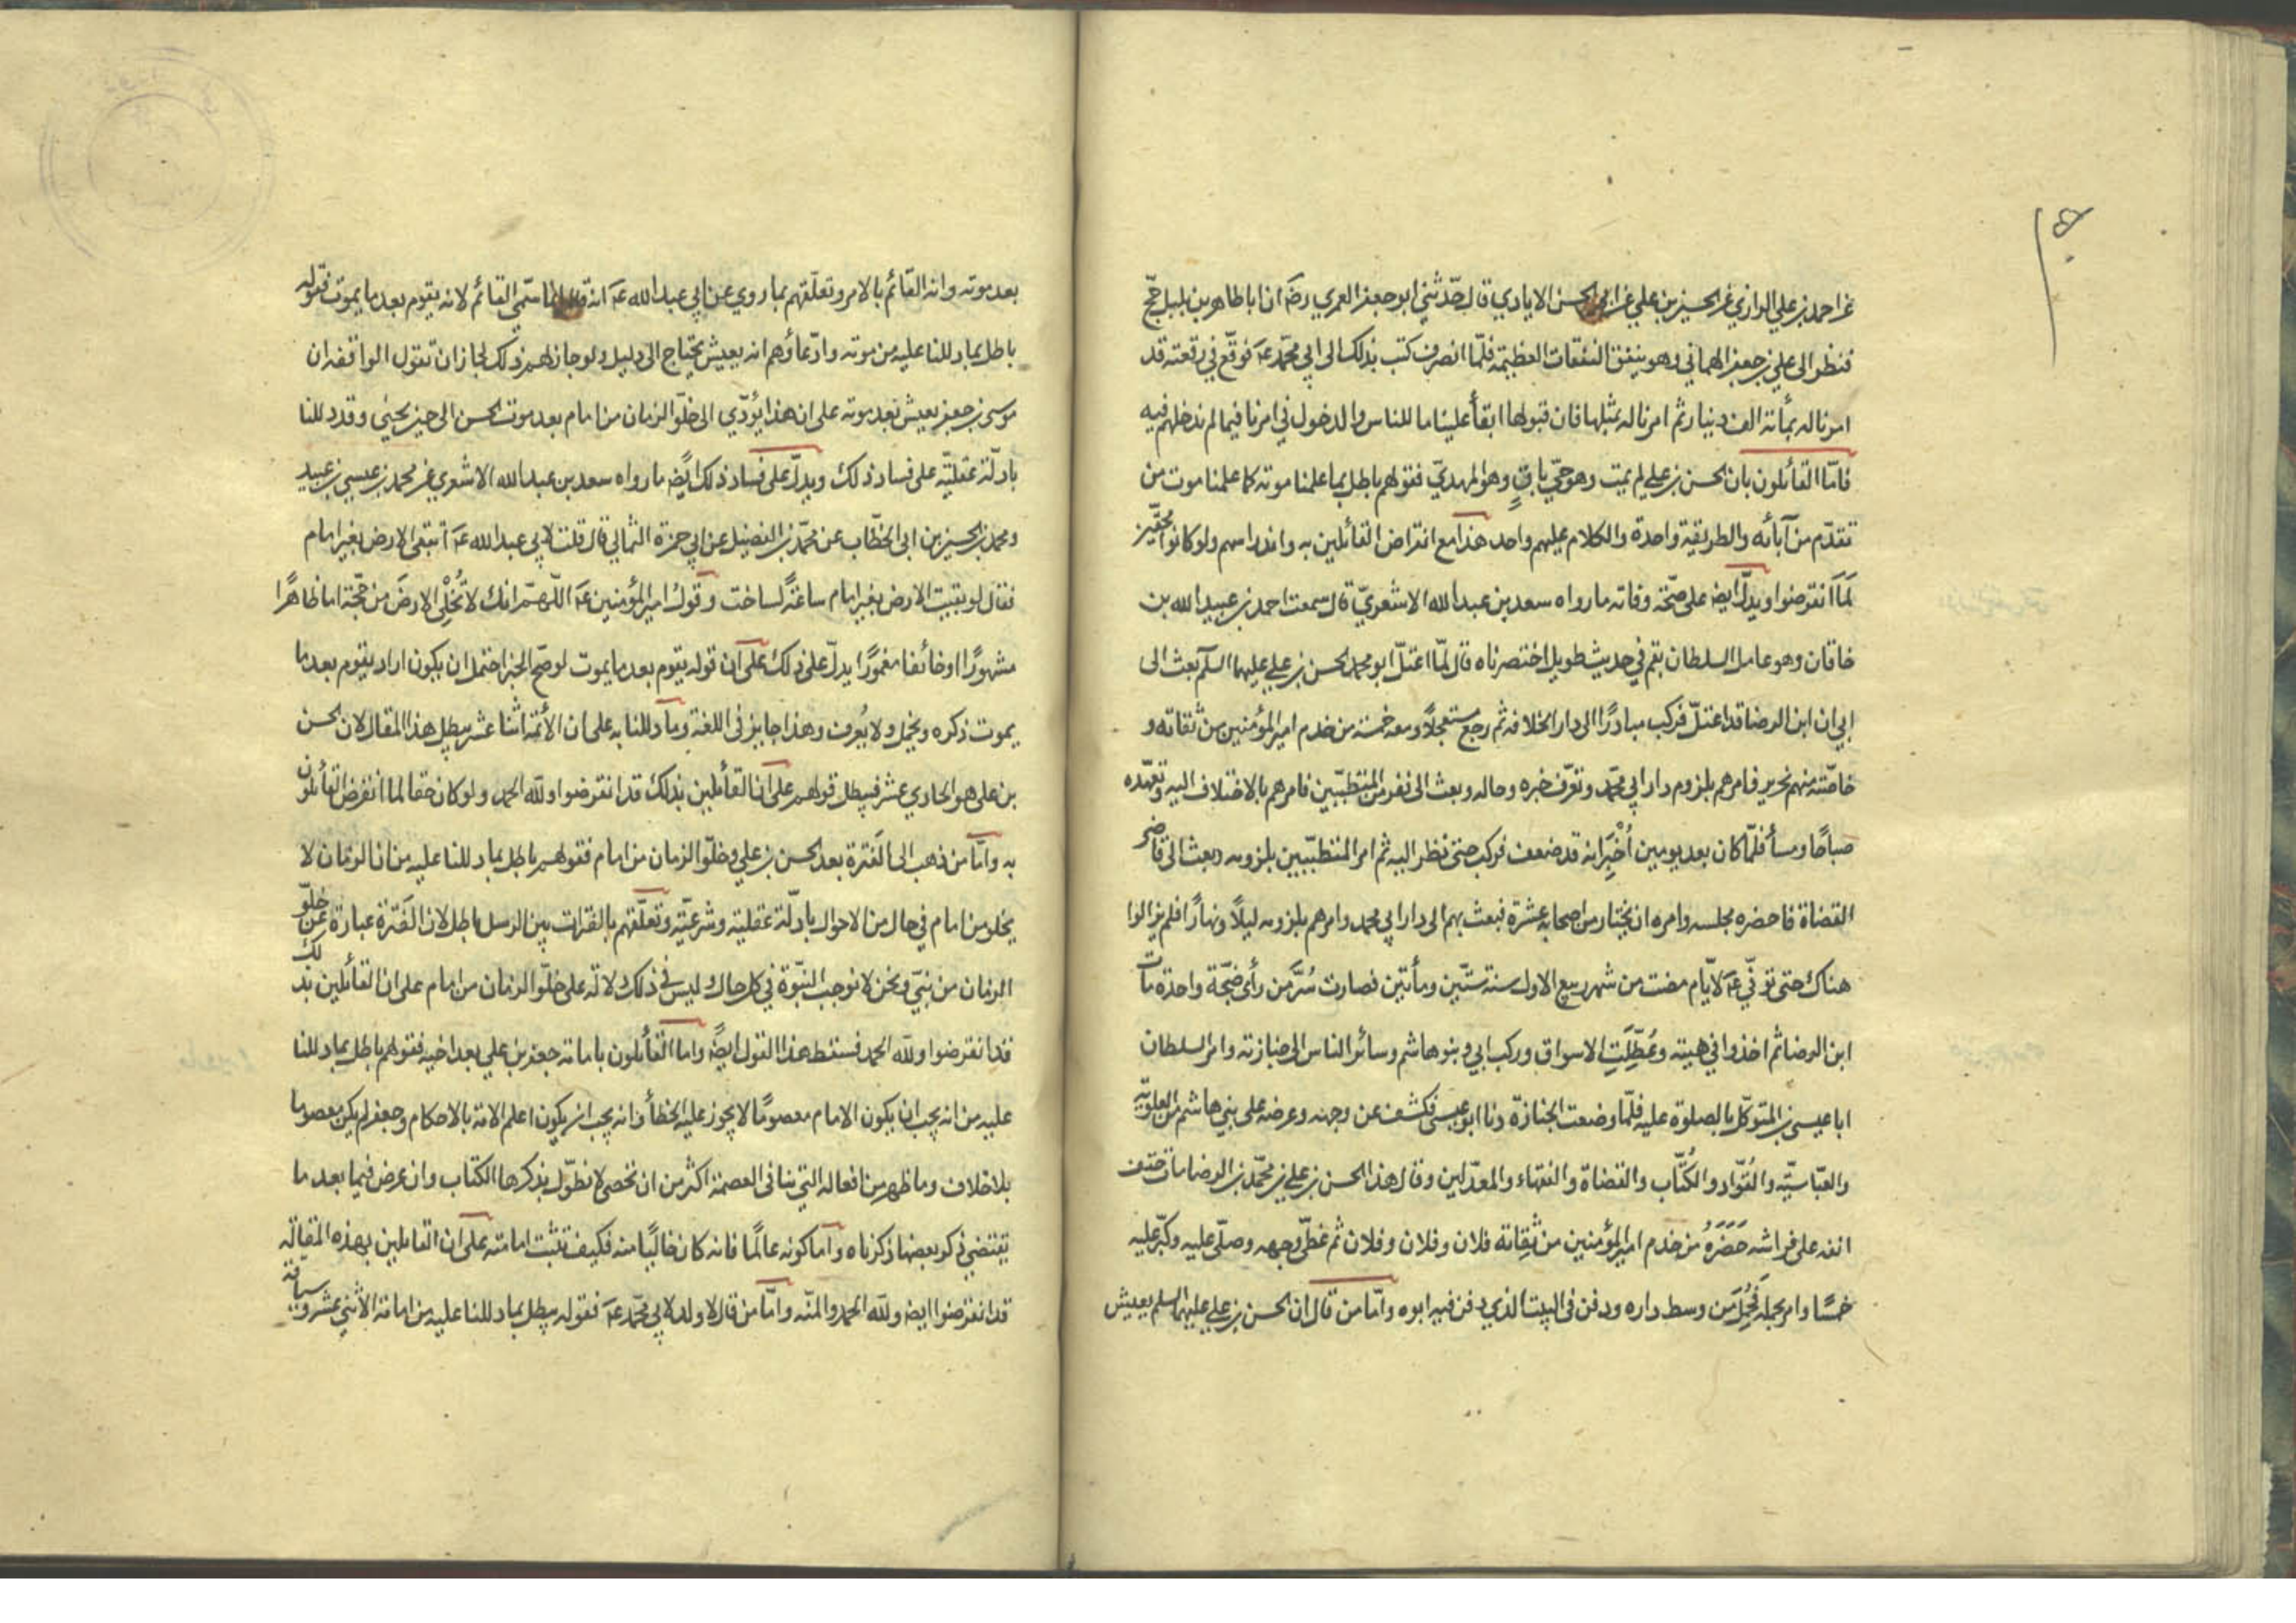 عن احمد بن علي الرازي عن الحسين بن علي عن ابي الحسن الايادي قال حدّثني ابو جعفر العمري رضَ ان ابا طاهر بن بلبل حجّ
فنظر الى علي بن جعفر الهماني وهو ينفق النفقات العظيمة فلمّا انصرف كتب بذلك الى ابي محمّد عَه فوقّع في رقعته قد
امرنا له بمأئة الف دينار ثم امرنا له بمثلها فان قبولها ابقأ علينا ما للناس والدخول في امرنا فيما لم ندخلهم فيه
فامّا القائلون بان الحسن بن علي لم يمت وهو حيّ باقٍ وهو المهديّ فقولهم باطل بما علمنا موته كما علمنا موت من
تقدّم من آبائه والطريقة واحدة والكلام عليهم واحد هذا مع انقراض القائلين به واندراسهم ولو كانوا محقّين
لَمَا انقرضوا ويدلّ ايضَ على صحّة وفاته ما رواه سعد بن عبد الله الاشعريّ قال سمعت احمد بن عبيد الله بن
خاقان وهو عامل السلطان بقم في حديث طويل اختصرناه قال لمّا اعتلّ ابو محمد الحسن بن علي عليهما السلَم بعث الى
ابي ان ابن الرضا قد اعتلّ فركب مبادرًا الى دار الخلافة ثم رجع مستعجلاً ومعه خمسة من خدم امير المؤمنين من ثقاته و
خاصّته منهم نحرير فامرهم بلزوم دار ابي محمّد وتعرّف خبره وحاله وبعث الى نفر من المتطبّبين فامرهم بالاختلاف اليه وتعهّده
صباحًا ومسأ فلمّا كان بعد يومين أُخْبِرَ انه قد ضعف فركب حتى نظر اليه ثم امر المتطبّبين بلزومه وبعث الى قاضي
القضاة فاحضره مجلسه وامره ان يختار من اصحابه عشرة فبعث بهم الى دار ابي محمد وامرهم بلزومه ليلاً ونهارًا فلم يزالوا
هناك حتى توفّي عَه لايّام مضت من شهر ربيع الاول سنة ستّين ومأتين فصارت سُرَّ مَن رأى ضجّة واحدة مات
ابن الرضا ثم اخذوا في هيبته وعُطِّلَتِ الاسواق وركب ابي وبنو هاشم وسائر الناس الى جنازته وامر السلطان
ابا عيسى بن المتوكّل بالصلوة عليه فلمّا وضعت الجنازة دنا ابو عيسى فكشف عن وجهه وعرضه على بني هاشم من العلويّة
والعبّاسيّه والقوّاد والكُتّاب والقضاة والفقهاء والمعدّلين وقال هذا الحسن بن علي بن محمّد بن الرضا مات حتف
انفه على فراشه حَضَرَهُ من خدم امير المؤمنين من ثِقاته فلان وفلان وفلان ثم غطّى وجهه وصلّى عليه وكبّر عليه
خمسًا وامر بحمله فَحُمِلَ من وسط داره ودفن في البيت الذي دفن فيه ابوه وامّا من قال ان الحسن بن علي عليهما السلم يعيش
بعد موته وانه القائم بالامر وتعلّقهم بما روي عن ابي عبد الله عَه انه قال انما سمّى القائم لانه يقوم بعد ما يموت فقوله
باطل بما دللنا عليه من موته وادّعاؤهم انه يعيش يحتاج الى دليل ولو جاز لهم ذلك لجاز ان تقول الواقفة ان
موسى بن جعفر يعيش بعد موته على ان هذا يُؤدّي الى خلوّ الزمان من امام بعد موت الحسن الى حين يحيٰى وقد دللنا
بادلّة عقليّة على فساد ذلك ويدلّ على فساد ذلك ايضًا ما رواه سعد بن عبد الله الاشعري عن محمد بن عيسى بن عبيد
ومحمد بن الحسين بن ابى الخطّاب عن محمّد بن الفضيل عن ابي حمزة الثمالي قال قلت لابي عبد الله عَه اتبقى الارض بغير امام
فقال لو بقيت الارض بغير امام ساعةً لساخت وقول امير المؤمنين عَه اللّهمّ انك لا تُخْلِي الارضَ من حجّة اما ظاهرًا
مشهورًا او خائفا مغمورًا يدلّ على ذلك على ان قوله يقوم بعد ما يموت لو صحّ الخبر احتمل ان يكون اراد يقوم بعد ما
يموت ذكره ويخمل ولا يُعرف وهذا جايز فى اللغة وما دللنا به على ان الأئمة اثنا عشر يبطل هذا المقال لان الحسن
بن على هو الحادي عشر فيبطل قولهم على ان القائلين بذلك قد انقرضوا ولله الحمد ولو كان حقا لما انقرض القائلون
به وامّا من ذهب الى الفَترة بعد الحسن بن علي وخلوّ الزمان من امام فقولهم باطل بما دللنا عليه من ان الزمان لا
يخلو من امام في حال من الاحوال بادلّة عقلية وشرعيّة وتعلّقهم بالفترات بين الرسل باطل لان الفَترة عبارة عن خلوّ
الزمان من نبيّ ونحن لا نوجب النبّوة في كل حال وليس فى ذلك دلالة على خلوّ الزمان من امام على ان القائلين بذلك
قد انقرضوا ولله الحمد فسقط هذا القول ايضًا واما القائلون بامامة جعفر بن علي بعد اخيه فقولهم باطل بما دللنا
عليه من انه يجب ان يكون الامام معصومًا لا يجوز عليه الخطأ وانه يجب ان يكون اعلم الامة بالاحكام وجعفر لم يكن معصوما
بلا خلاف وما ظهر من افعاله التي تنافى العصمة اكثر من ان تحصى لا نطوّل بذكرها الكتاب وان عرض فيما بعد ما
يقتضي ذكر بعضها ذكرناه واما كونه عالمًا فانه كان خاليًا منه فكيف تثبت امامته على ان القائلين بهذه المقالة
قد انقرضوا ايضَ ولله الحمد والمنّه وامّا من قال لا ولد لابي محمّد عَه فقوله يبطل بما دللنا عليه من امامة الأثني عشر وسياقة